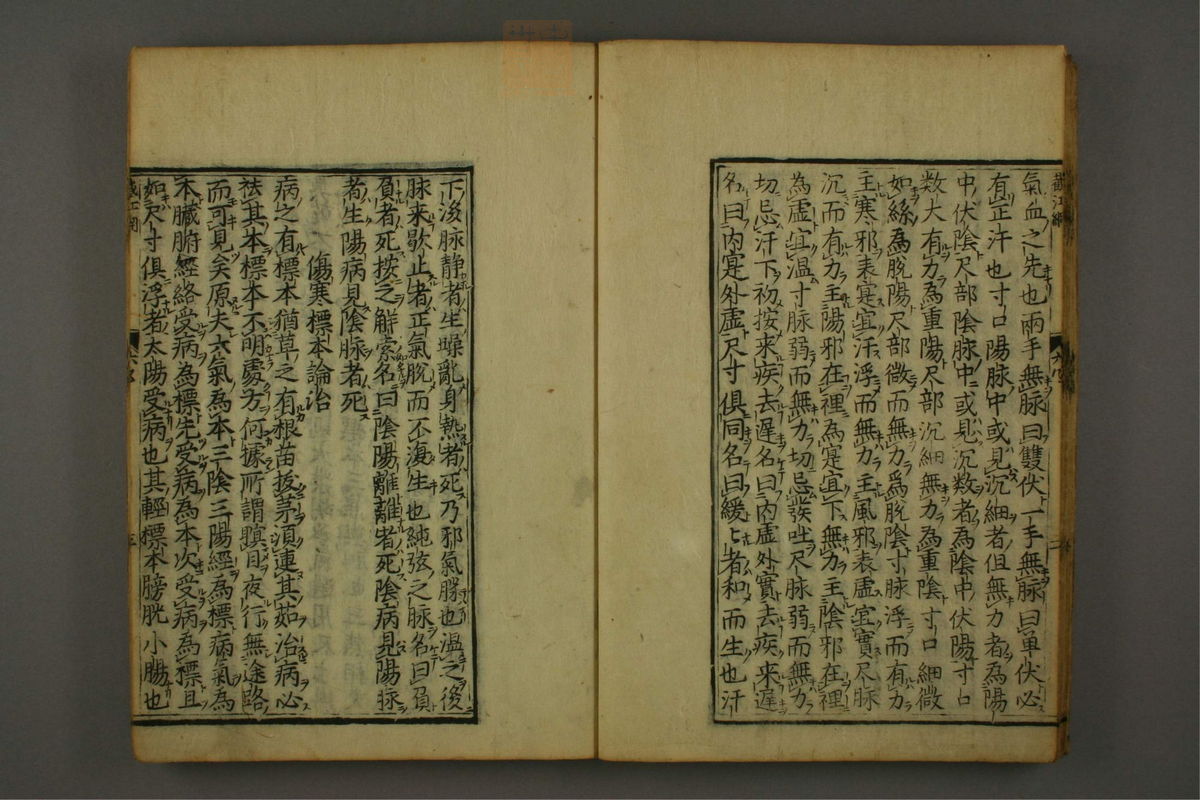 氣血之先也兩手無脉曰雙伏一手無脉曰単伏必
有正汗也寸口陽脉中或見沉細者但無力者為陽
中伏陰尺部陰脉中或見沉数者為陰中伏陽寸口
数大有力為重陽尺部沉細無力為重陰寸口細微
如絲為脫陽尺部微而無力為脫陰寸脉浮而有力
主寒邪表寔宜汗浮而無力主風邪表虚宜實尺脉
沉而有力主陽邪在裡為寔宜下無力主陰邪在裡
為虚宜温寸脉弱而無力切忌發吐尺脉弱而無力
切忌汗下初按来疾去遅名曰内虚外實去疾来遅
名曰内寔外虚尺寸俱同名曰緩〻者和而生也汗
下後脉静者生躁亂身熱者死乃邪氣勝也温之後
脉来歇止者正氣脫而不復生也純弦之脉名曰負
負者死按之觧索名曰陰陽離離者死陰病見陽脉
者生陽病見陰脉者死
傷寒標本論治
病之有標本猶草之有根苗拔茅須連其茹治病必
祛其本標本不明處方何據所謂瞑目夜行無途路
而可見矣原夫六氣為本三陰三陽經為標病氣為
本臓腑經絡受病為標先受病為本次受病為標且
如尺寸俱浮者太陽受病也其輕標本膀胱小腸也